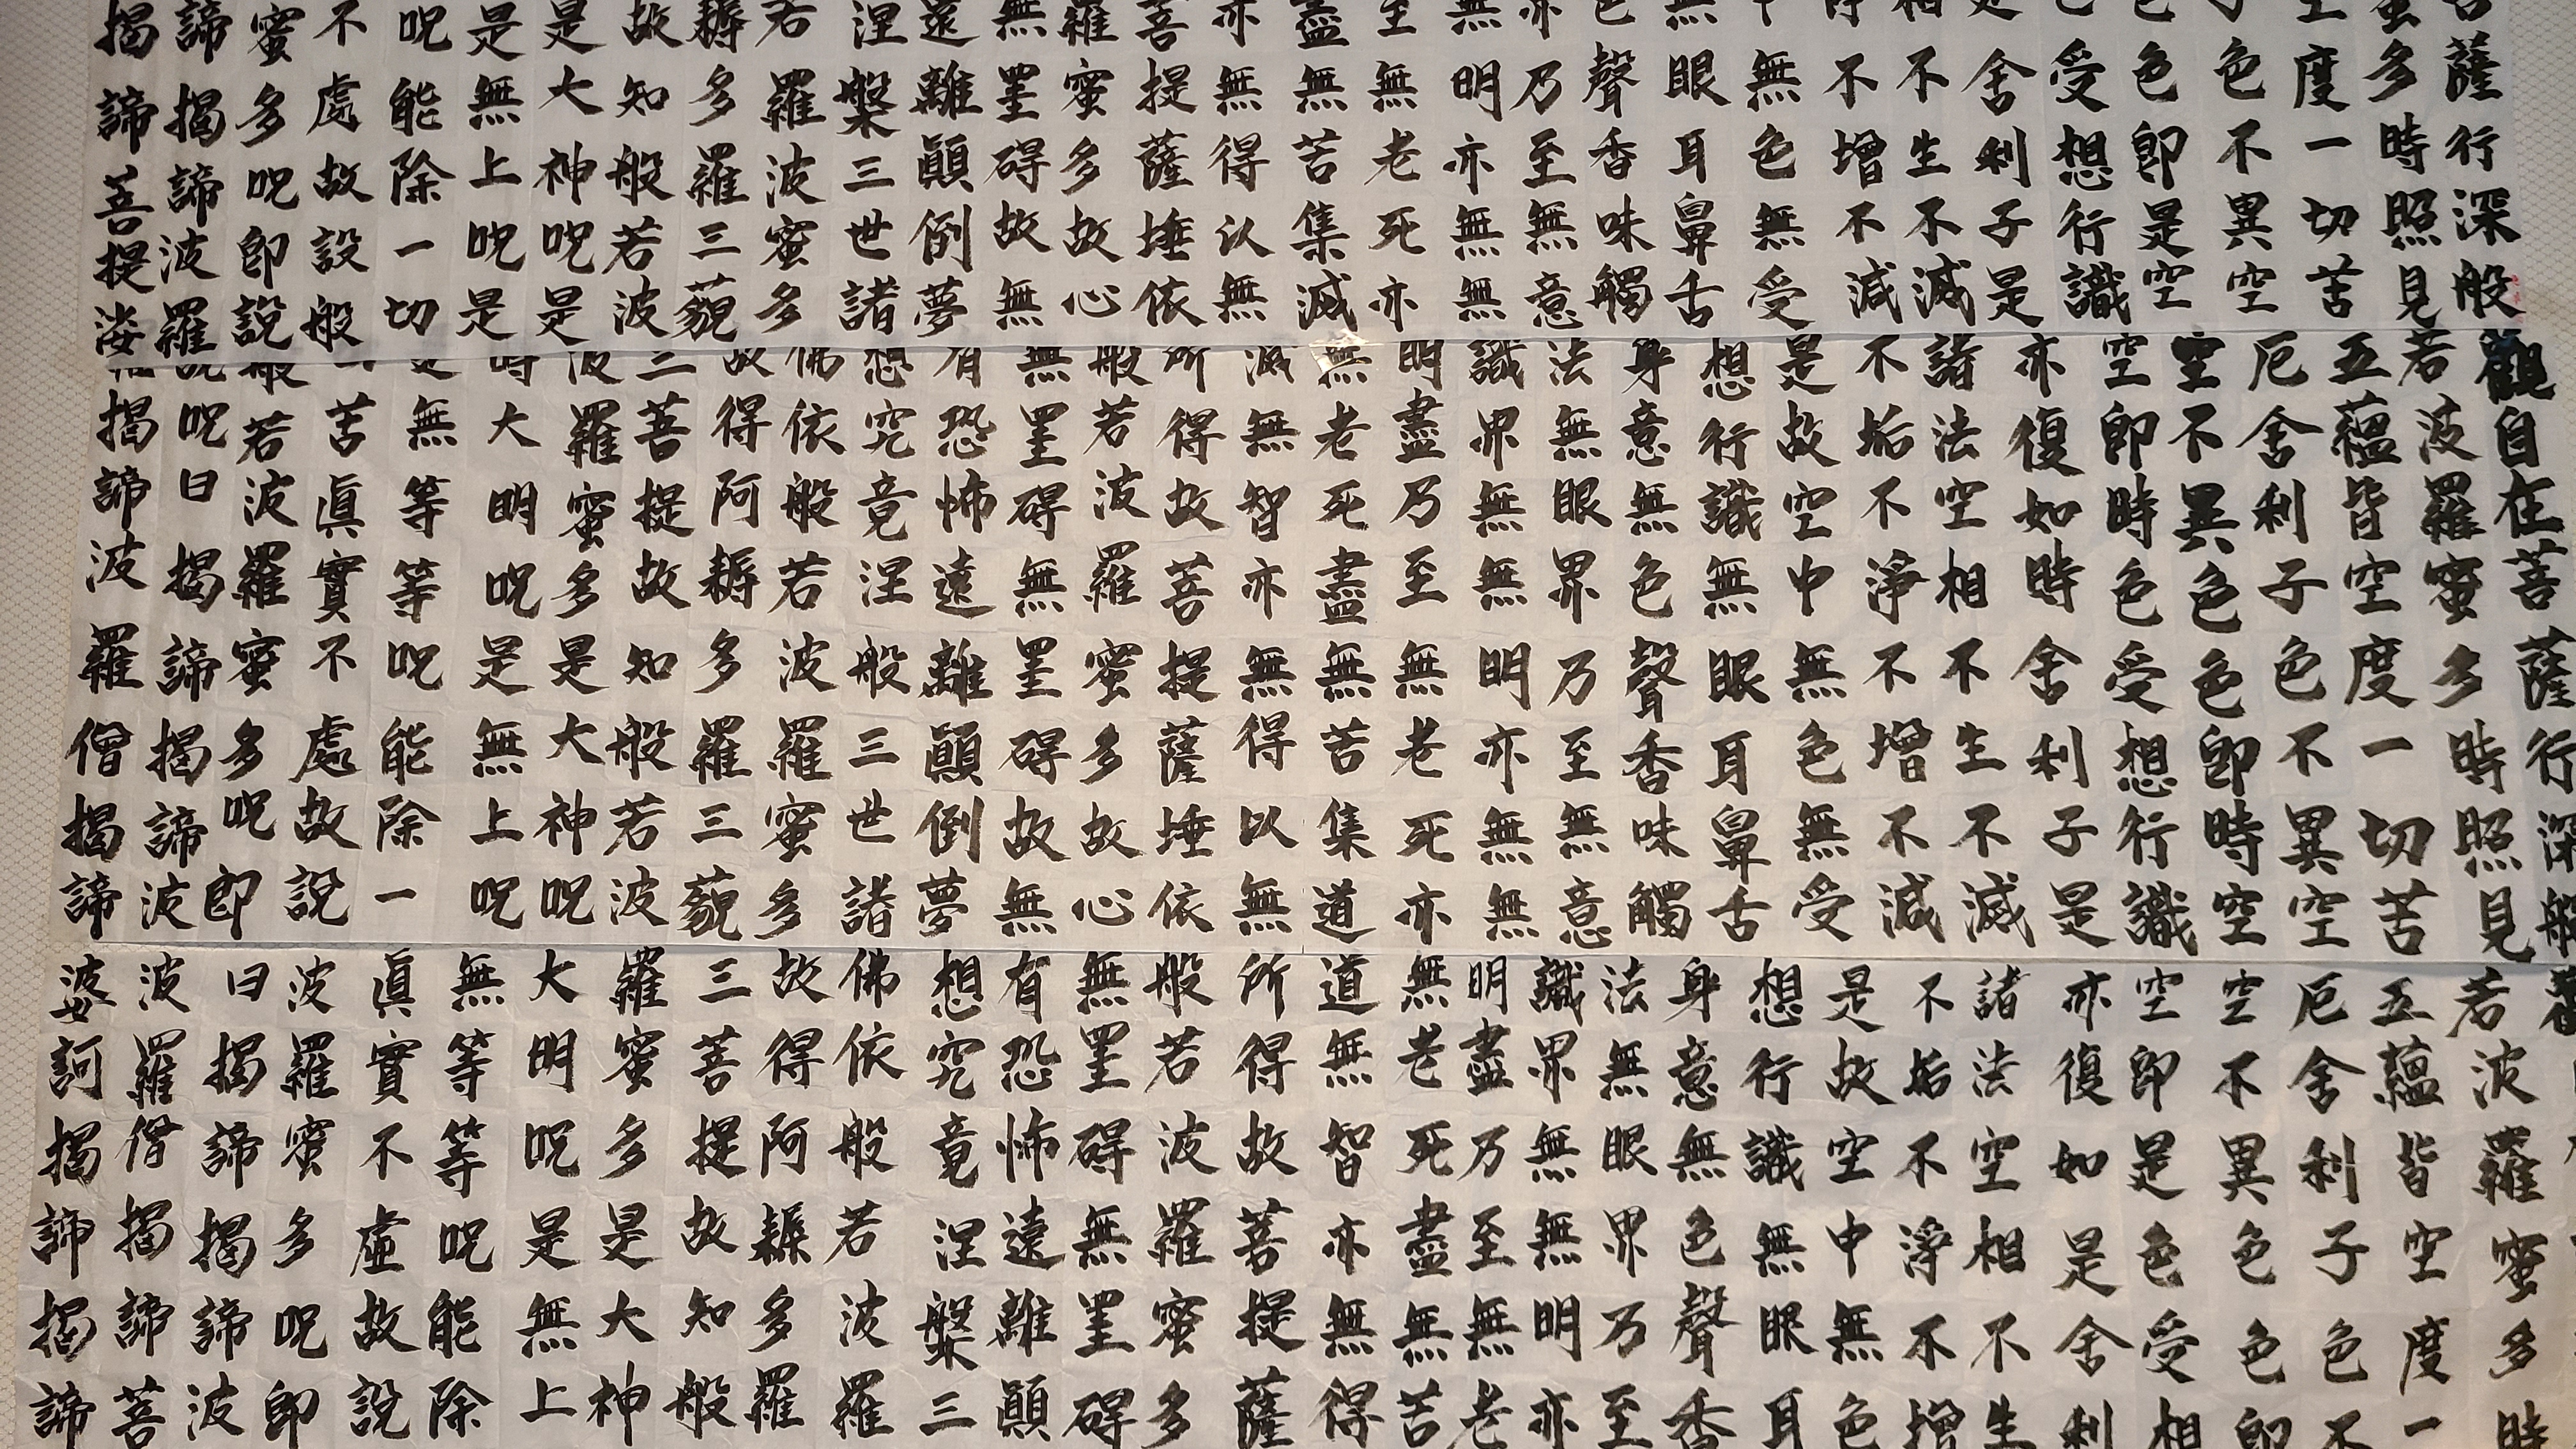 薩行深般
多時照見
度一切苦
色不異空
色即是空
受想行識
舍利子是
不生不滅
不增不減
無色無受
眼耳鼻舌
聲香味觸
乃至無意
明亦無無
至無老死亦
盡無苦集滅
亦無得以無
菩提薩埵依
羅蜜多故心
無罣碍故無
遠離顛倒夢
涅槃三世諸
若羅波蜜多
耨多羅三藐
故知般若波
是大神呪是
是無上呪是
呪能除一切
不處故設般
蜜多呪即說
諦揭諦波羅
揭諦菩提娑
觀自在菩薩行深般
若波羅蜜多時照見
五蘊皆空度一切苦
厄舍利子色不異空
空不異色色即時空
空即時色受想行識
亦復如時舍利子是
諸法空相不生不滅
不垢不淨不增不減
是故空中無色無受
想行識無眼耳鼻舌
身意無色聲香味觸
法無眼界乃至無意
識界無無明亦無無
明盡乃至無老死亦
無老死盡無苦集道
滅無智亦無得以無
所得故菩提薩埵依
般若波羅蜜多故心
無罣碍無罣碍故無
有恐怖遠離顛倒夢
想究竟涅般三世諸
佛依般若波羅蜜多
故得阿耨多羅三藐
三菩提故知般若波
波羅蜜多是大神呪
時大明呪是無上呪
是無等等呪能除一
苦眞實不處故說
般若波羅蜜多呪即
說呪曰揭諦揭諦波
揭諦波羅僧揭諦
若波羅蜜多時
五蘊皆空度一
厄舍利子色不
空不異色色即
空即是色受相
亦復如是舍利
諸法空相不生
不垢不淨不增
是故空中無色
想行識無眼耳
身意無色聲香
法無眼界乃至
識界無無明亦
明盡乃至無老
無老死盡無苦
道無智亦無得
所得故菩提薩
般若波羅蜜多
無罣碍無罣碍
有恐怖遠離顛
想究竟涅槃三
佛依般若波羅
故得阿耨多羅
三菩提故知般
羅蜜多是大神
大明呪是無上
無等等呪能除
眞實不虛故說
波羅蜜多呪即
曰揭諦揭諦波
波羅僧揭諦菩
婆訶揭諦揭諦